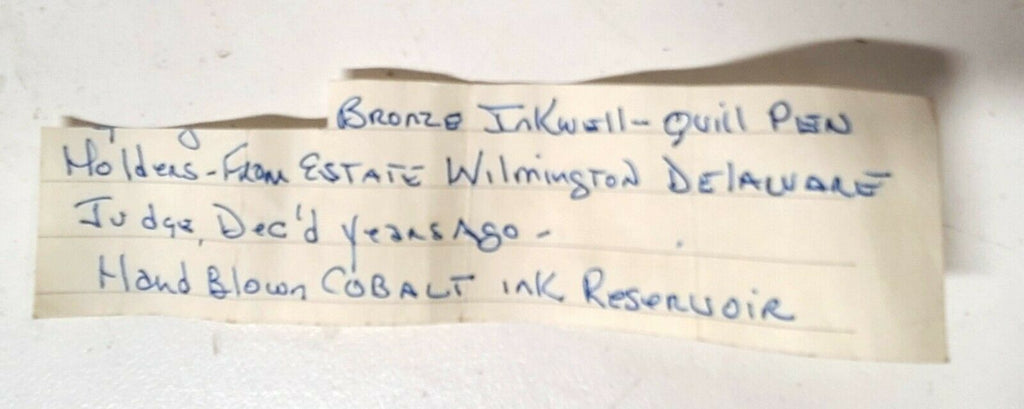 Bronze Inkwell - Quill Pen
Holders - From ESTATE Wilmington DELAWARE
Judge, Dec'd years Ago -
Hand Blown COBALT ink Reservoir